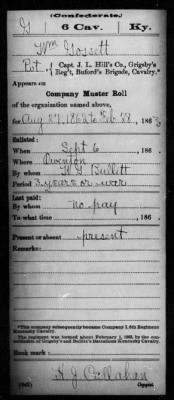 (Confederate.)
G 6 Cav. Ky.
Wm Gossett
Pvt. { Capt. J. L. Hill's Co., Grigsby's
Reg't, Buford's Brigade, Cavalry.*
Appears on
Company Muster Roll
of the organization named above,
for Aug 27, 1862 to Feb 28, 1863
Enlisted:
When Sept 6, 186
Where Owenton
By whom Bullett
Period 3 years or war
Last paid:
By whom no pay
To what time , 186 .
Present or absent present
Remarks:
*This company subsequently became Company I, 6th Regiment
Kentucky Cavalry.
The regiment was formed about February 1, 1863, by the con-
solidation of Grigsby's and Bullitt's Battalions Kentucky Cavalry.
Book mark:
H J Callahan
(642) Copyist.